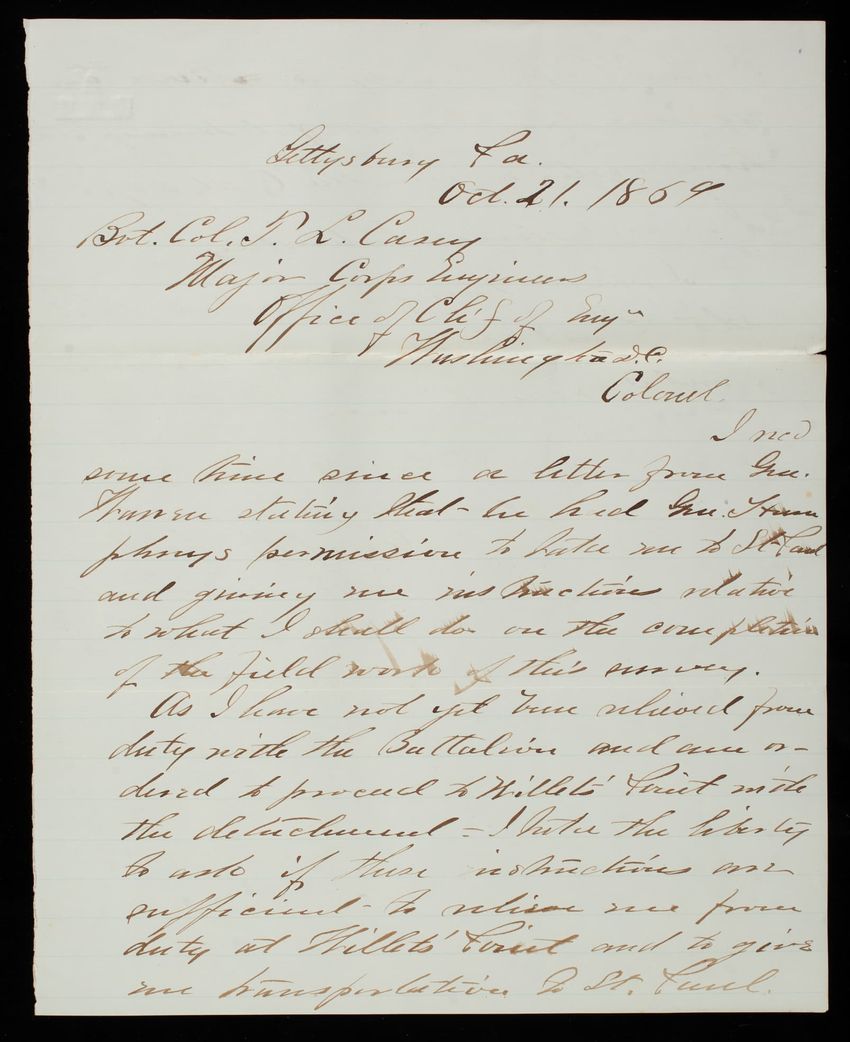 Gettysburg Pa.
Oct. 21. 1869
Bvt. Col. T. L. Casey
Major Corps Engineers
Office of Chf of Engrs
Washington D.C.
Colonel
I recd
some time since a letter from Gen.
Warren stating that he had Gen. Hum
phreys permission to take me to St. Paul
and giving me instructions relative
to what I shall do on the completion
of the field work of this survey.
As I have not yet been relieved from
duty with the Battalion and am or-
dered to proceed to Willets' Point with
the detachment - I take the liberty
to ask if these instructions are
sufficient to relieve me from
duty at Willets' Point and to give
me transportation to St. Paul.